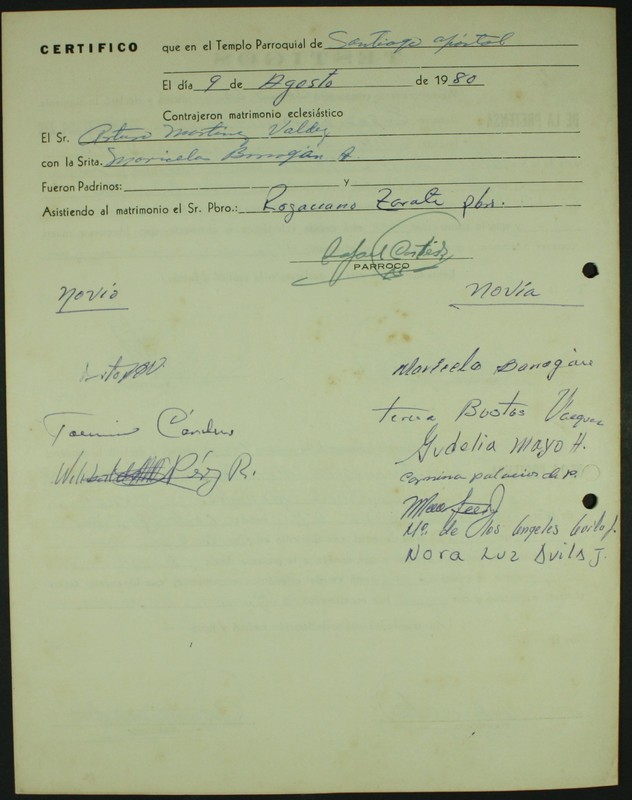 CERTIFICO que en el Templo Parroquial de Santiago apóstol
El día 9 de Agosto de 1980
Contrajeron matrimonio eclesiástico
El Sr. Arturo Martínez Valdez
con la Srita. Maricela Barragán A.
Fueron Padrinos: y
Asistiendo al matrimonio el Sr. Pbro.: Rogaciano Zarate pbro.
Rafael Cortés
PARROCO
Novio
Novia
Maricela Barragán
Teresa Bustos Vazquez
Gudelia Mayo H.
Pérez R.
Carmina Palacios de P.
Ma. de los Angeles Avila J.
Nora Luz Avila J.